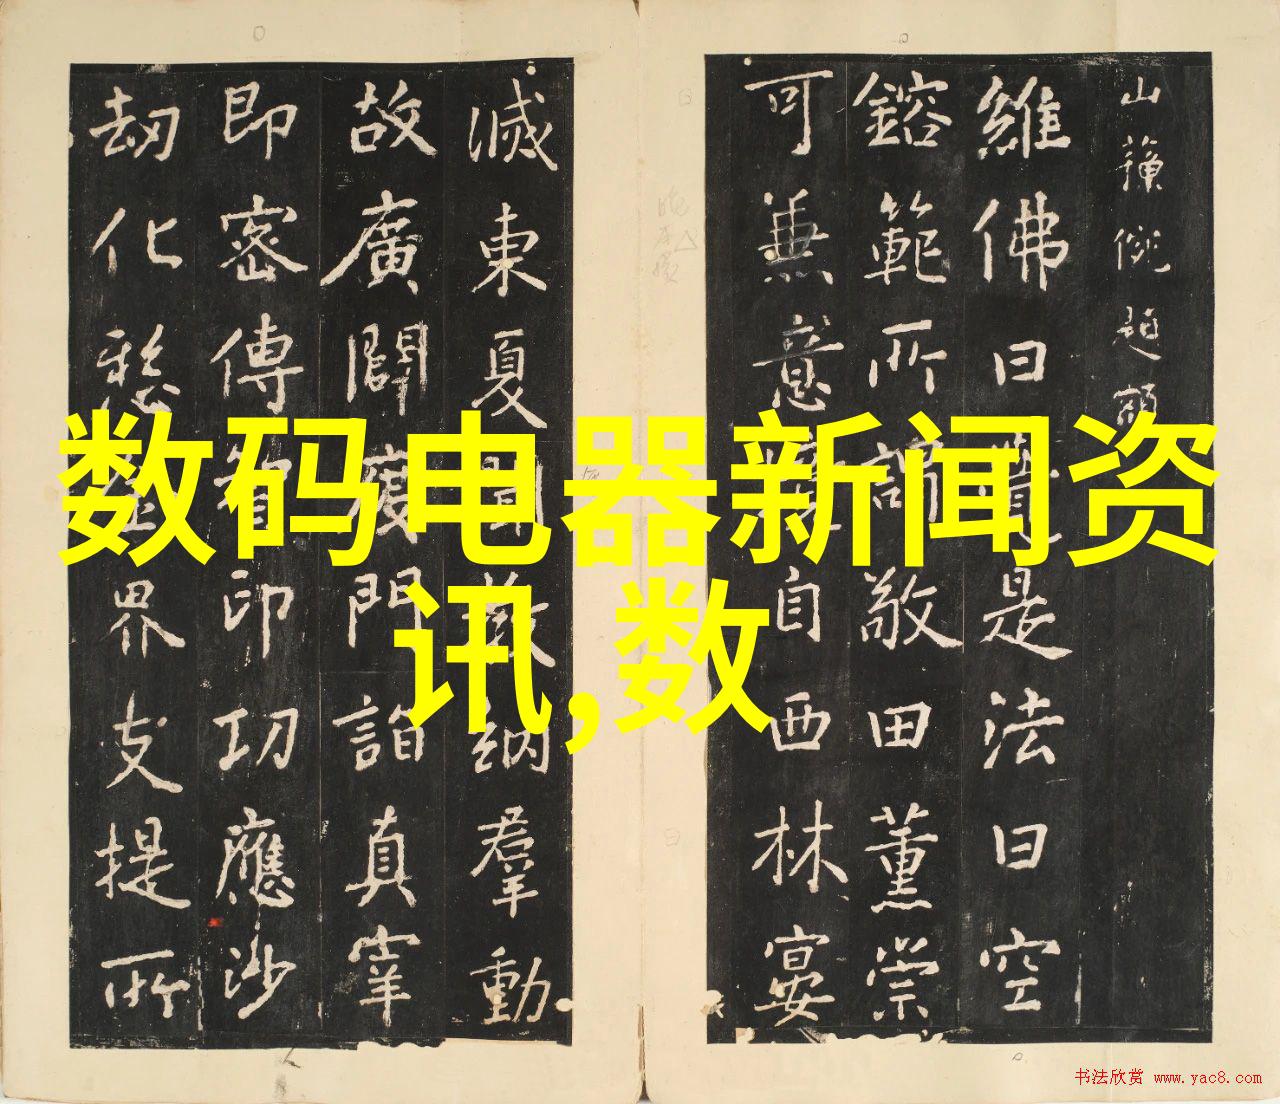 数码电器新闻资
讯,数
山
維佛曰是法曰空
鎔範所敬田薰崇
可兼意自西林宴
滅東夏聞納羣動
故廣闢度門詣真宰
即密傳智印功應沙
劫化界支提所
书法欣赏 www.yac8.com